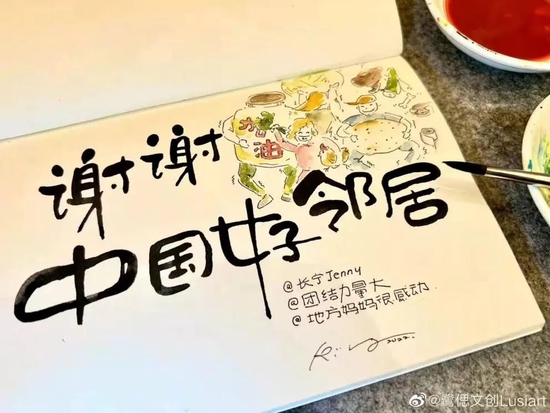 谢谢
加油
中国好邻居
@长宁Jenny
@团结力量大
@地方妈妈很感动
2022.
@鹭偲文创Lusiart